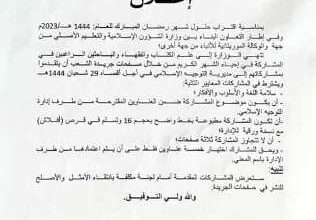 إعــلان
بمناسبة اقتراب حلول شهر رمضان المبارك للعام: 1444 هـ/2023م
وفي إطار التعاون البناء بين وزارة الشؤون الإسلامية والتعليم الأصلي من
جهة والوكالة الموريتانية للأنباء من جهة أخرى؛
تنهي الوزارة إلى علم الكتاب والفقهاء والباحثين الراغبين في
المشاركة في إحياء الشهر الكريم من خلال صفحات جريدة الشعب أن يتقدموا
بمشاركاتهم إلى مديرية التوجيه الإسلامي في أجل أقصاه 29 شعبان 1444هـ
ويشترط في المشاركات المعايير التالية:
- سلامة اللغة والأسلوب والأفكار؛
- أن يكون موضوع المشاركة ضمن العناوين المقترحة من طرف إدارة
التوجيه الإسلامي.
-أن تكون المشاركة مطبوعة بخط واضح بحجم 16 وتسلم في قرص (فلاش)
مع نسخة ورقية للإدارة؛
- أن لا تتجاوز المشاركة ثلاثة صفحات؛
- ويحق للمشارك اختيار خمسة عناوين فقط على أن يتم اعتمادها من طرف
الإدارة باسم المعني.
تنبيه:
ستعرض المشاركات المقدمة أمام لجنة مكلفة بانتقاء الأمثل والأصلح
للنشر في صفحات الجريدة.
والله ولي التوفيق.